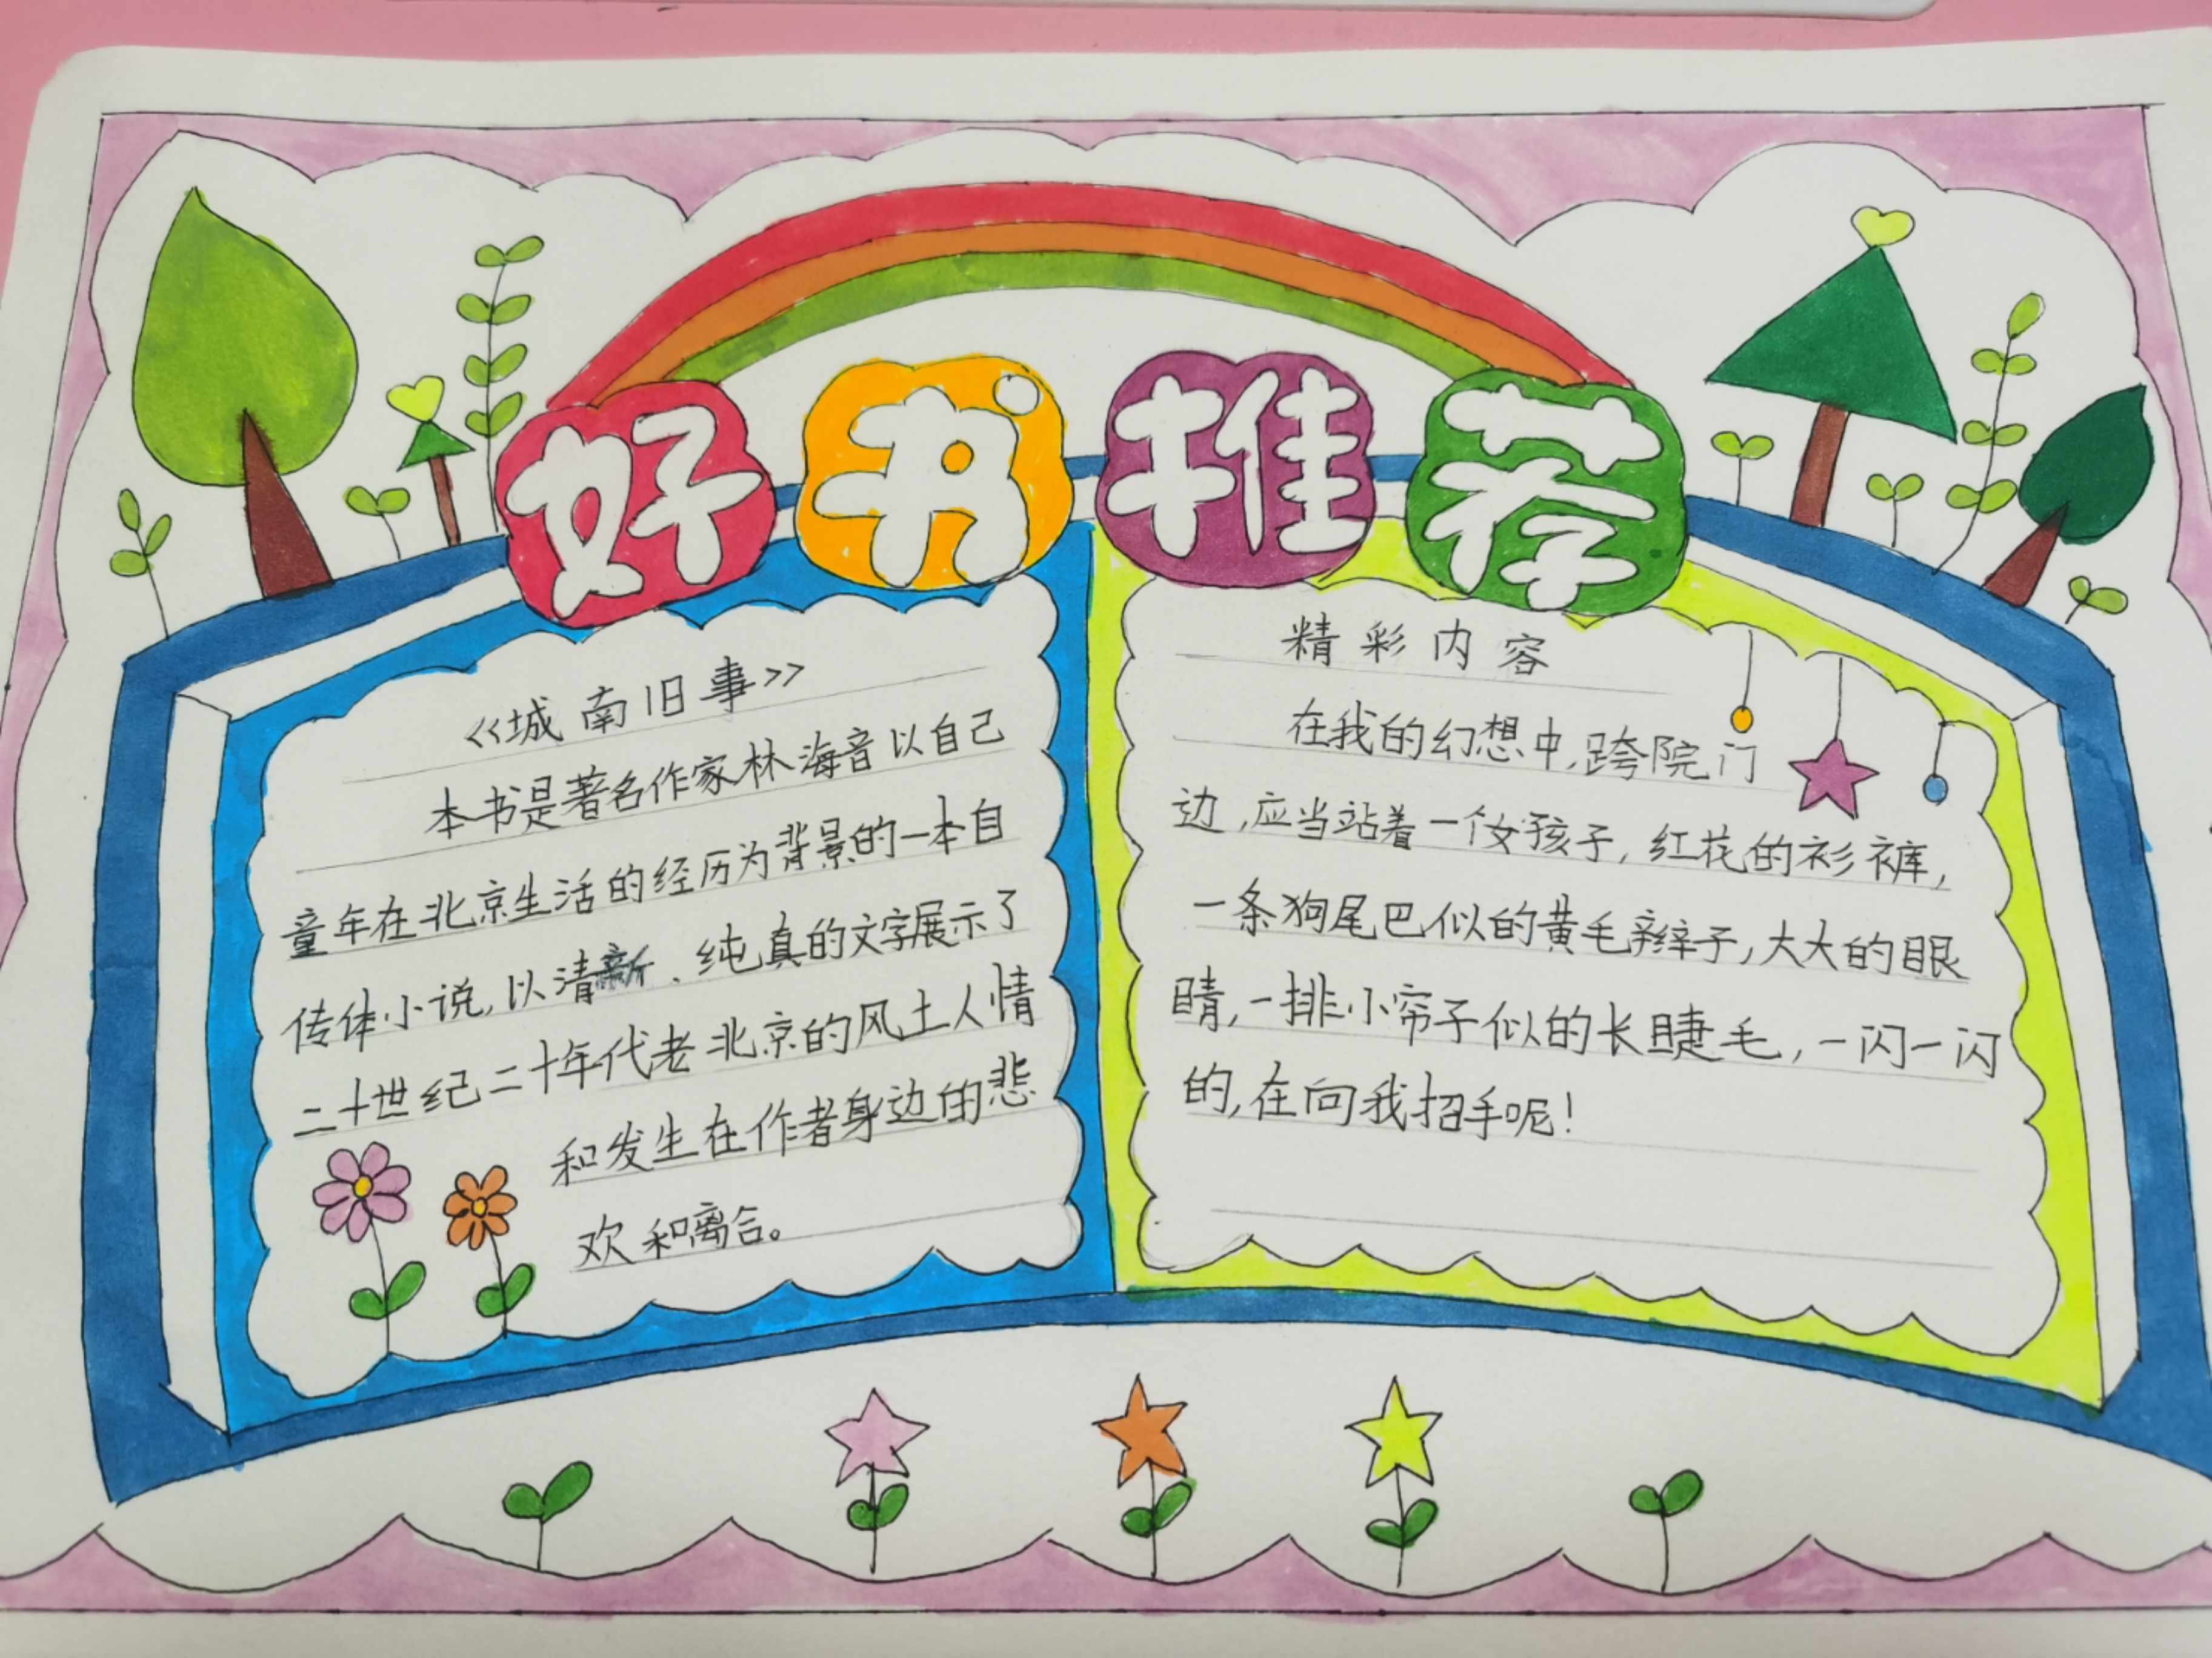 好书推荐
《城南旧事》
本书是著名作家林海音以自己
童年在北京生活的经历为背景的一本自
传体小说,以清新、纯真的文字展示了
二十世纪二十年代老北京的风土人情
和发生在作者身边的悲
欢和离合。
精彩内容
在我的幻想中,跨院门
边,应当站着一个女孩子,红花的衫裤,
一条狗尾巴似的黄毛辫子,大大的眼
睛,一排小帘子似的长睫毛,一闪一闪
的,在向我招手呢!